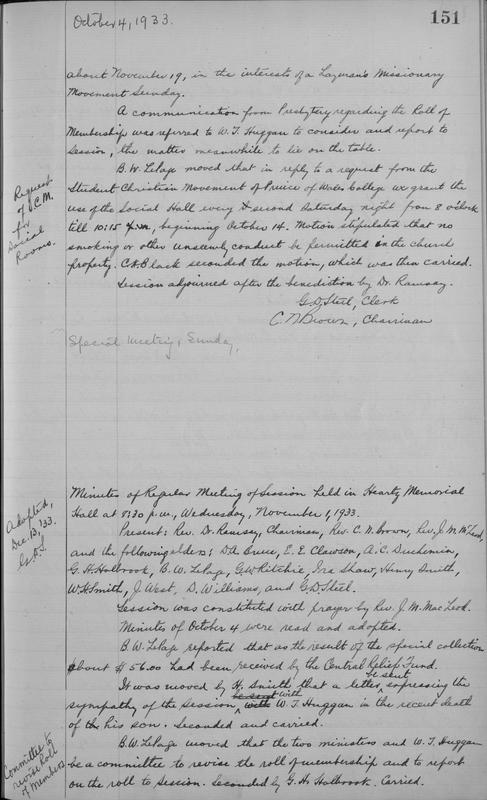 October 4, 1933.
151
about November 19, in the interests of a Layman's Missionary
Movement Sunday.
A communication from Presbytery regarding the Roll of
Membership was referred to W. T. Huggan to consider and report to
Session, the matter meanwhile to lie on the table.
Request
of S.C.M.
for
Social
Rooms.
B. W. LePage moved that in reply to a request from the
Student Christian Movement of Prince of Wales College we grant the
use of the Social Hall every second Saturday night from 8 o'clock
till 10:15 p.m., beginning October 14. Motion stipulated that no
smoking or other unseemly conduct be permitted in the church
property. C. R. Black seconded the motion, which was then carried.
Session adjourned after the benediction by Dr. Ramsay.
G. D. Steel, Clerk
C. N. Brown, Chairman
Special Meeting, Sunday,
Adopted,
Dec. 13, '33.
G.D.S.
Minutes of Regular Meeting of Session held in Heartz Memorial
Hall at 8:30 p.m., Wednesday, November 1, 1933.
Present: Rev. Dr. Ramsay, Chairman, Rev. C. N. Brown, Rev. J. M. McLeod,
and the following elders: D. A. Bruce, E. E. Clawson, A. C.
G. H. Holbrook, B. W. LePage, G. W. Ritchie, Ira Shaw, Henry Smith,
W. H. Smith, J. West, D. Williams, and G. D. Steel.
Session was constituted with prayer by Rev. J. M. MacLeod.
Minutes of October 4 were read and adopted.
B. W. LePage reported that as the result of the special collection
about $56.00 had been received by the Central Relief Fund.
It was moved by H. Smith that a letter be sent, expressing the
sympathy of the Session, with W. T. Huggan in the recent death
of his son. Seconded and carried.
Committee to
revise Roll
of Members
B. W. LePage moved that the two ministers and W. T. Huggan
be a committee to revise the roll of membership and to report
on the roll to Session. Seconded by G. H. Holbrook. Carried.